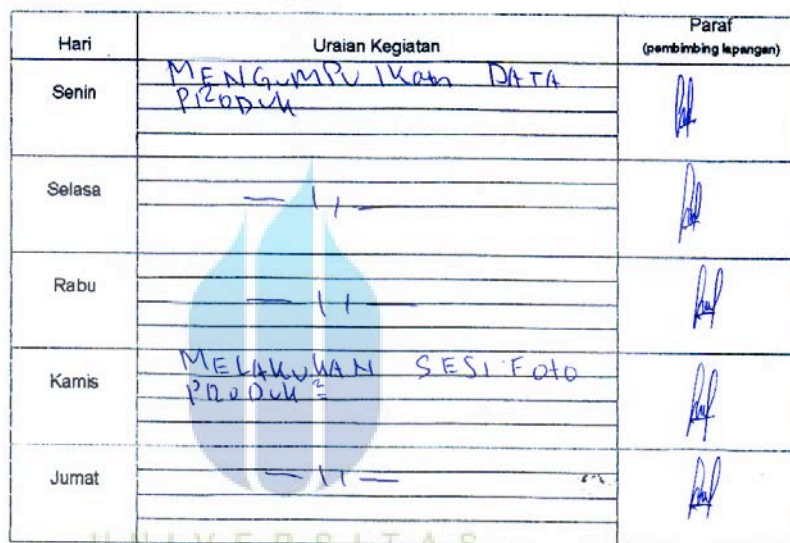 Hari
Uraian Kegiatan
Paraf
(pembimbing lapangan)
Senin
MENGUMPULKan DATA
PRODUK
Selasa
— 11 —
Rabu
— 11 —
Kamis
MELAKUKAN SESI FOTO
PRODUK²
Jumat
— 11 —
UNIVERSITAS